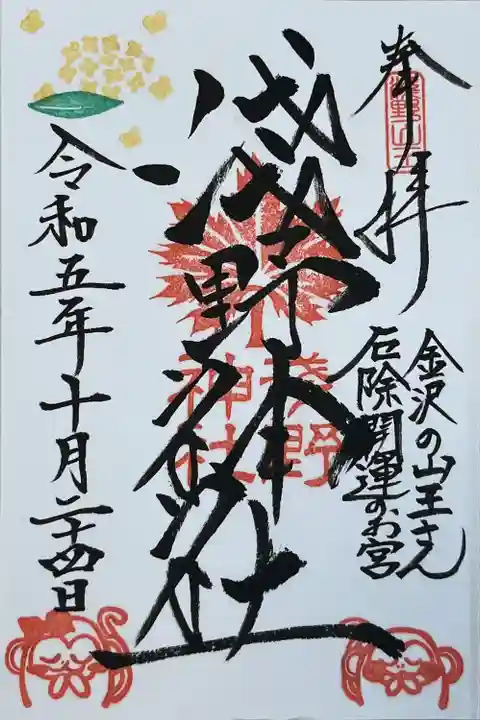 奉拝
浅野山王
金沢の山王さん
厄除開運のお宮
浅野神社
浅野
神社
令和五年十月二十四日